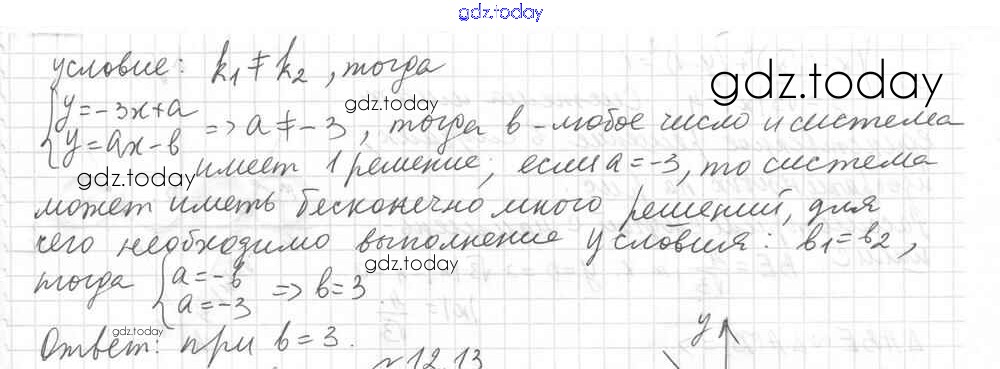 gdz.today
условие: k₁ ≠ k₂, тогда
gdz.today
gdz.today
{y = -3x + a
{y = ax - b => a ≠ -3, тогда b - любое число и система
имеет 1 решение; если a = -3, то система
gdz.today
может иметь бесконечно много решений, для
чего необходимо выполнение условия: b₁ = b₂,
gdz.today
тогда {a = -b
{a = -3 => b = 3.
gdz.today
Ответ: при b = 3.
y
№ 12.13